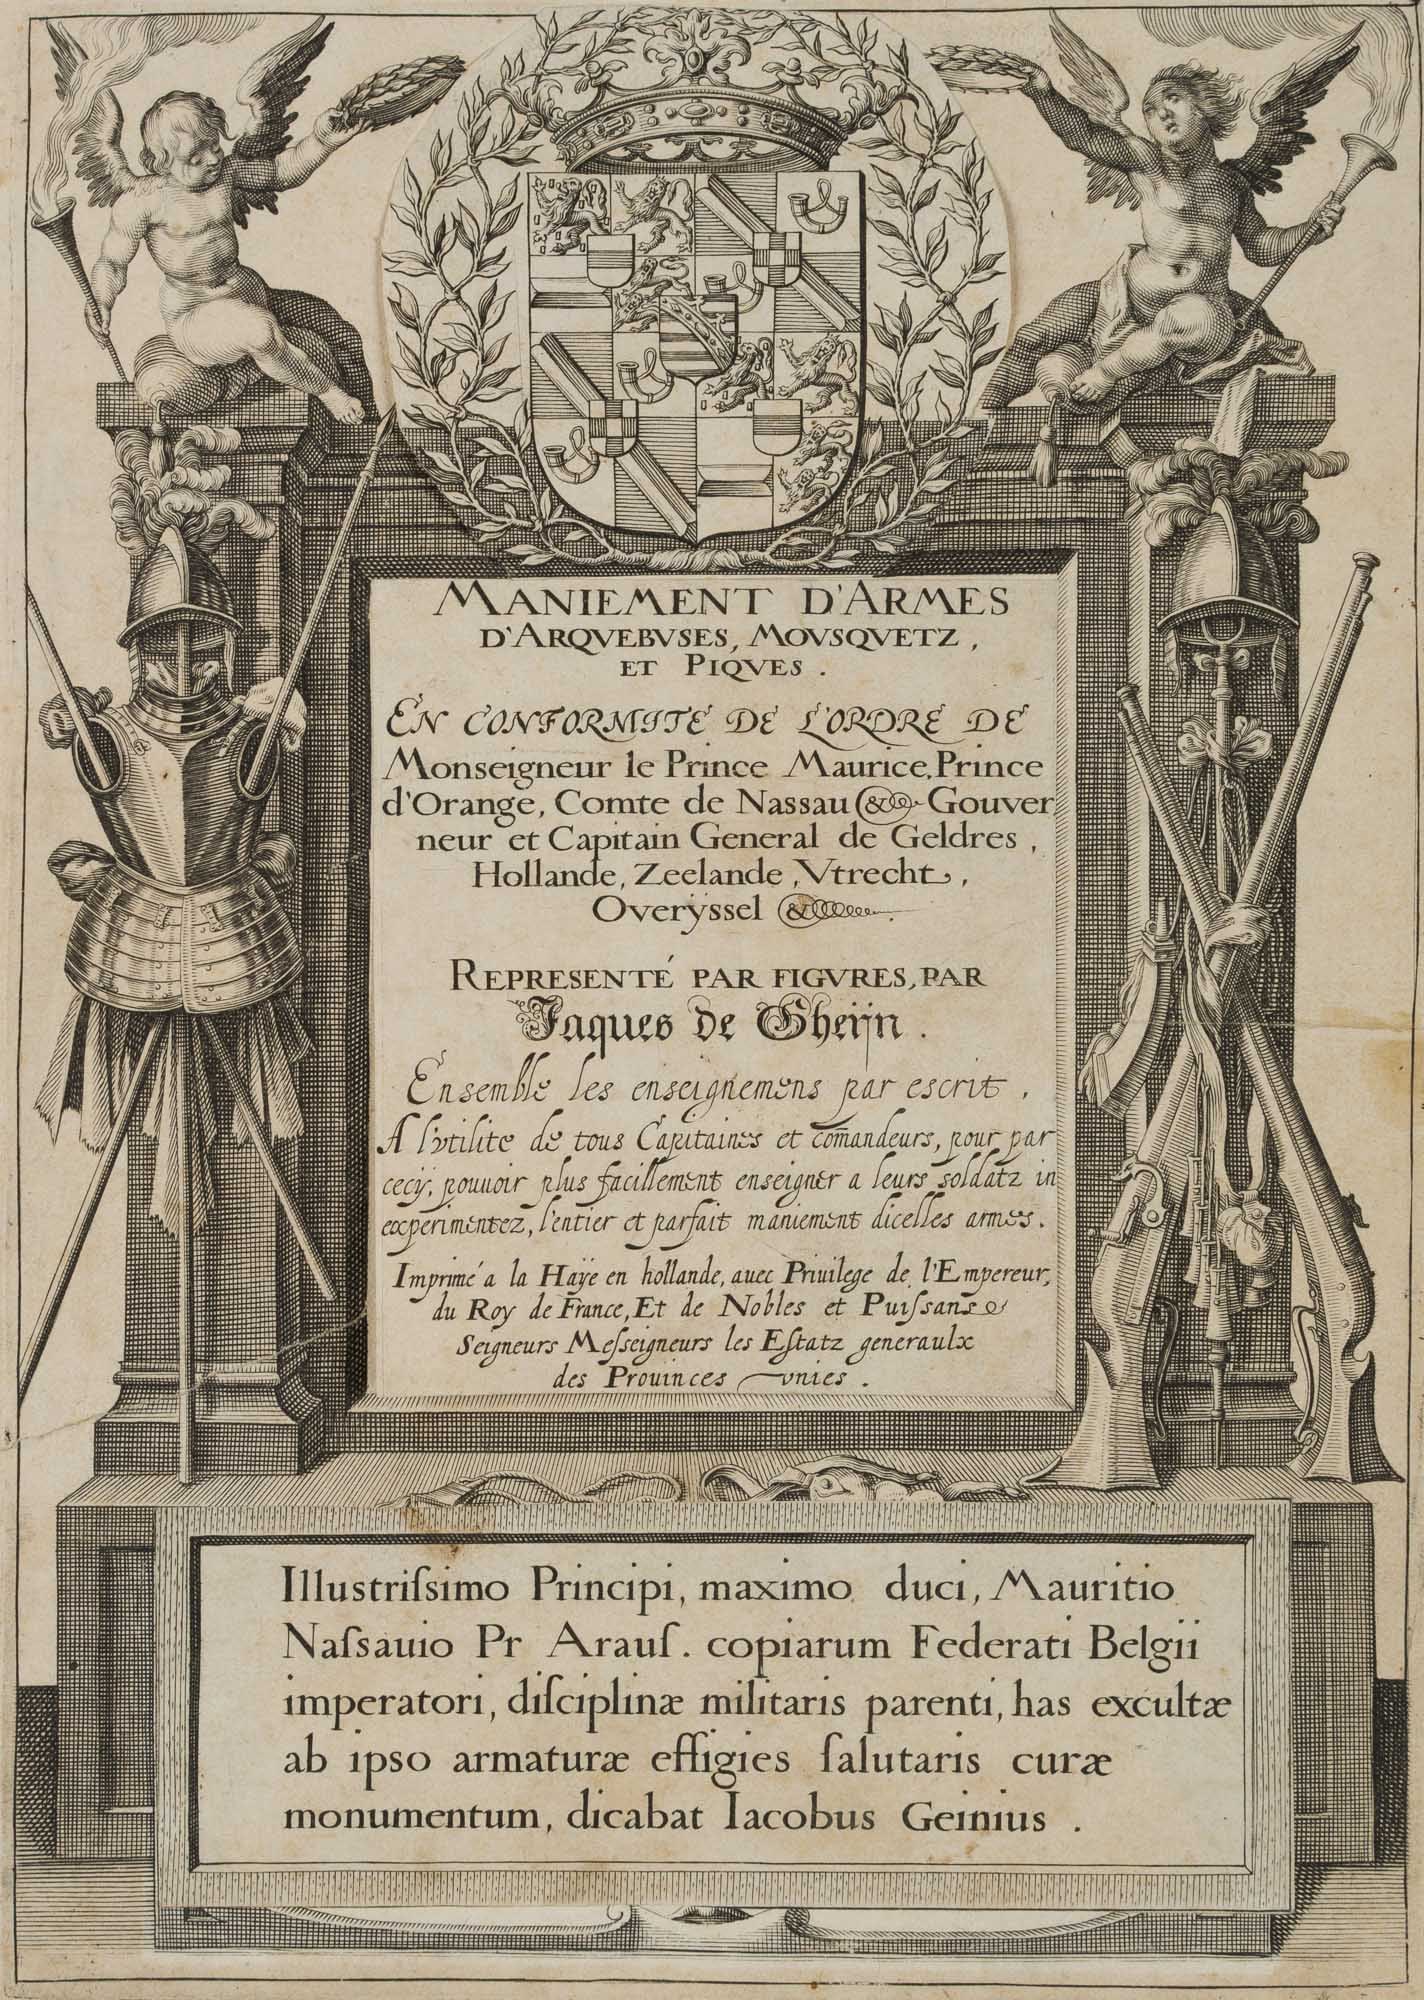 MANIEMENT D'ARMES
D'ARQVEBVSES, MOVSQVETZ,
ET PIQVES.
EN CONFORMITÉ DE L'ORDRE DE
Monseigneur le Prince Maurice, Prince
d'Orange, Comte de Nassau & Gouver
neur et Capitain General de Geldres,
Hollande, Zeelande, Vtrecht,
Overÿssel &.
REPRESENTÉ PAR FIGVRES, PAR
Jaques de Gheijn.
Ensemble les enseignemens par escrit,
A l'vtilite de tous Capitaines et com̄andeurs, pour par
cecÿ, pouuoir plus facillement enseigner a leurs soldatz in
experimentez, l'entier et parfait maniement dicelles armes.
Imprimé a la Haÿe en hollande, auec Priuilege de l'Empereur,
du Roy de France, Et de Nobles et Puiſsans
Seigneurs Meſseigneurs les Eſtatz generaulx
des Prouinces vnies.
Illustriſsimo Principi, maximo duci, Mauritio
Naſsauio Pr Arauſ. copiarum Federati Belgii
imperatori, diſciplinæ militaris parenti, has excultæ
ab ipso armaturæ effigies ſalutaris curæ
monumentum, dicabat Iacobus Geinius.